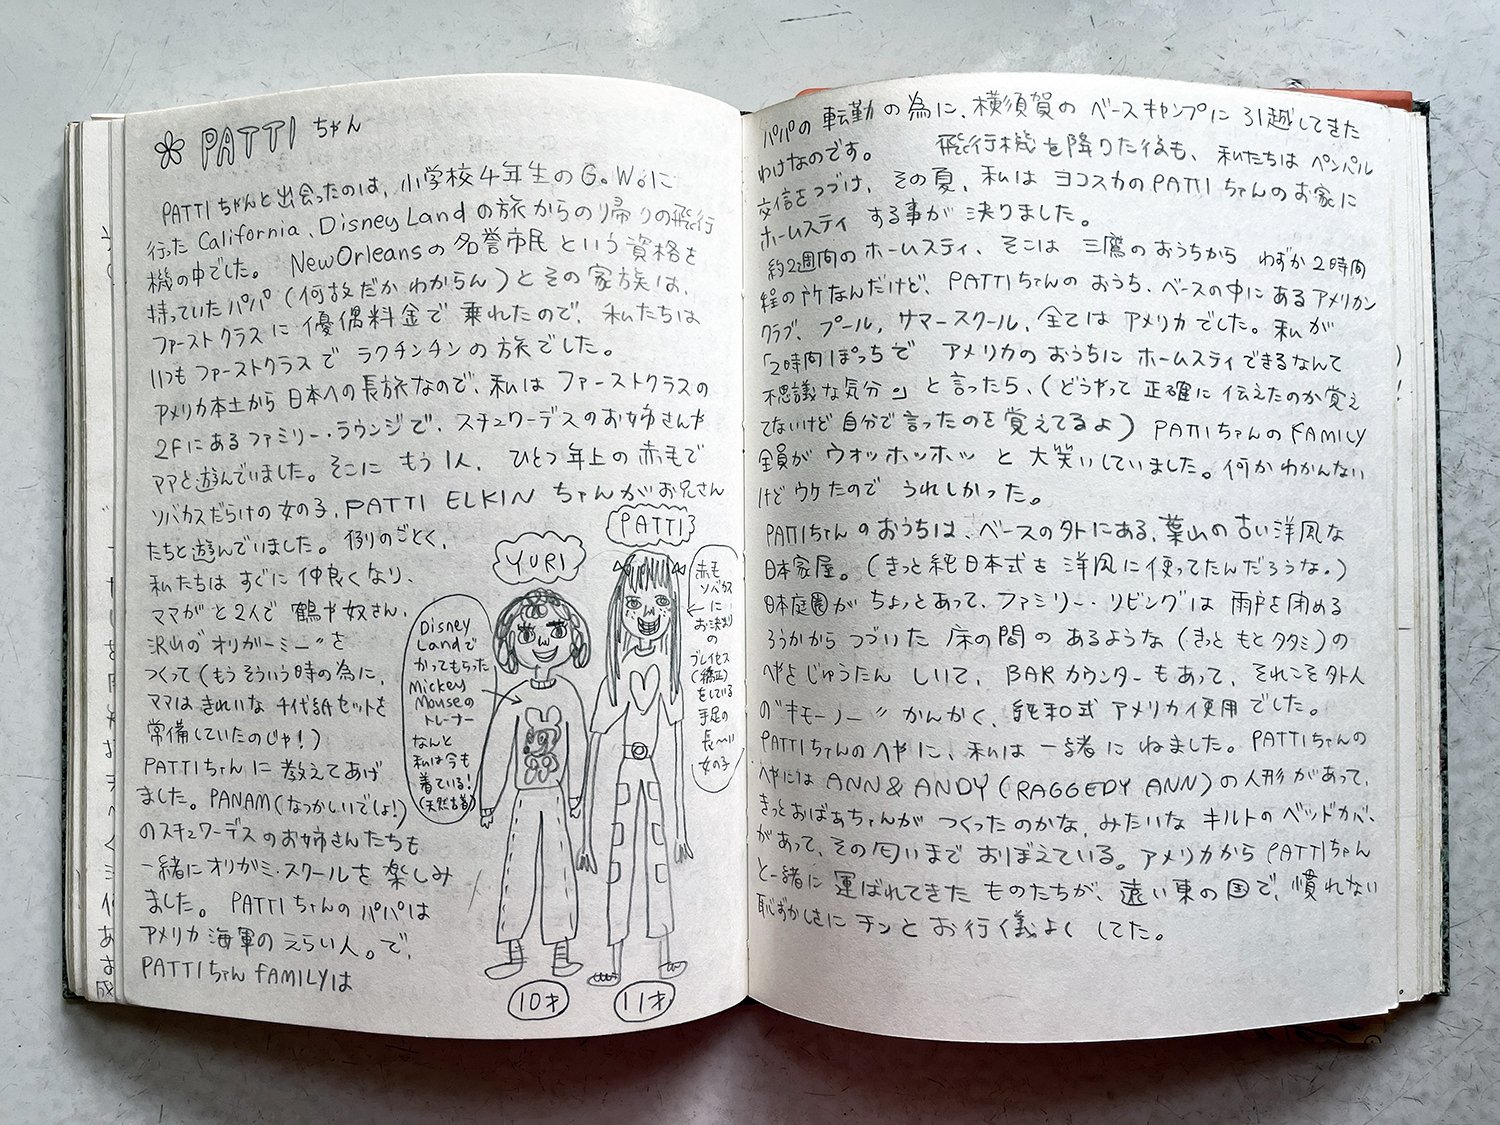 PATTI ちゃん
PATTIちゃんと出会ったのは、小学校4年生のG。W。に
行った California、Disney Landの旅からの帰りの飛行
機の中でした。 NewOrleansの名誉市民という資格を
持っていたパパ(何故だかわからん)とその家族は、
ファーストクラスに優偶料金で乗れたので、私たちは
いつもファーストクラスでラクチンチンの旅でした。
アメリカ本土から日本への長旅なので、私はファーストクラスの
2Fにあるファミリー・ラウンジで、スチュワーデスのお姉さんや
ママと遊んでいました。そこにもう1人、ひとつ年上の赤毛で
ソバカスだらけの女の子、PATTI ELKINちゃんがお兄さん
たちと遊んでいました。例のごとく、
私たちはすぐに仲良くなり、
ママがと2人で鶴や奴さん、
沢山の"オリガーミー"を
つくって(もうそういう時の為に、
ママはきれいな千代紙セットを
常備していたのじゃ!)
PATTIちゃんに教えてあげ
ました。PANAM(なつかしいでしょ!)
のスチュワーデスのお姉さんたちも
一緒にオリガミ・スクールを楽しみ
ました。PATTIちゃんのパパは
アメリカ海軍のえらい人。で、
PATTIちゃんFAMILYは
YURI
PATTI
Disney
Landで
かってもらった
Mickey
Mouseの
トレーナー
なんと
私は今も
着ている!
(天然古着)
赤毛
ソバカス
に
お決まり
の
ブレイセス
(矯正)
をしている
手足の
長〜い
女の子
10才
11才
パパの転勤の為に、横須賀のベースキャンプに引越してきた
わけなのです。 飛行機を降りた後も、私たちはペンパル
交信をつづけ、その夏、私はヨコスカのPATTIちゃんのお家に
ホームスティする事が決りました。
約2週間のホームスティ、そこは三鷹のおうちからわずか2時間
程の所なんだけど、PATTIちゃんのおうち、ベースの中にあるアメリカン
クラブ、プール、サマースクール、全てはアメリカでした。私が
「2時間ぽっちでアメリカのおうちにホームスティできるなんて
不思議な気分。」と言ったら、(どうやって正確に伝えたのか覚え
てないけど自分で言ったのを覚えてるよ)PATTIちゃんのFAMILY
全員がウォッホッホッと大笑いしていました。何かわかんない
けどウケたのでうれしかった。
PATTIちゃんのおうちは、ベースの外にある、葉山の古い洋風な
日本家屋。(きっと純日本式を洋風に使ってたんだろうな。)
日本庭園がちょっとあって、ファミリー・リビングは雨戸を閉める
ろうかからつづいた床の間のあるような(きっともとタタミ)の
へやとじゅうたんしいて、BARカウンターもあって、それこそ外人
の"キモーノー"かんかく、純和式アメリカイ使用でした。
PATTIちゃんのへやに、私は一緒にねました。PATTIちゃんの
へやにはANN&ANDY(RAGGEDY ANN)の人形があって、
きっとおばあちゃんがつくったのかな、みたいなキルトのベッドカバー
があって、その匂いまでおぼえている。アメリカからPATTIちゃん
と一緒に運ばれてきたものたちが、遠い東の国で、慣れない
恥ずかしさにチンとお行儀よくしてた。